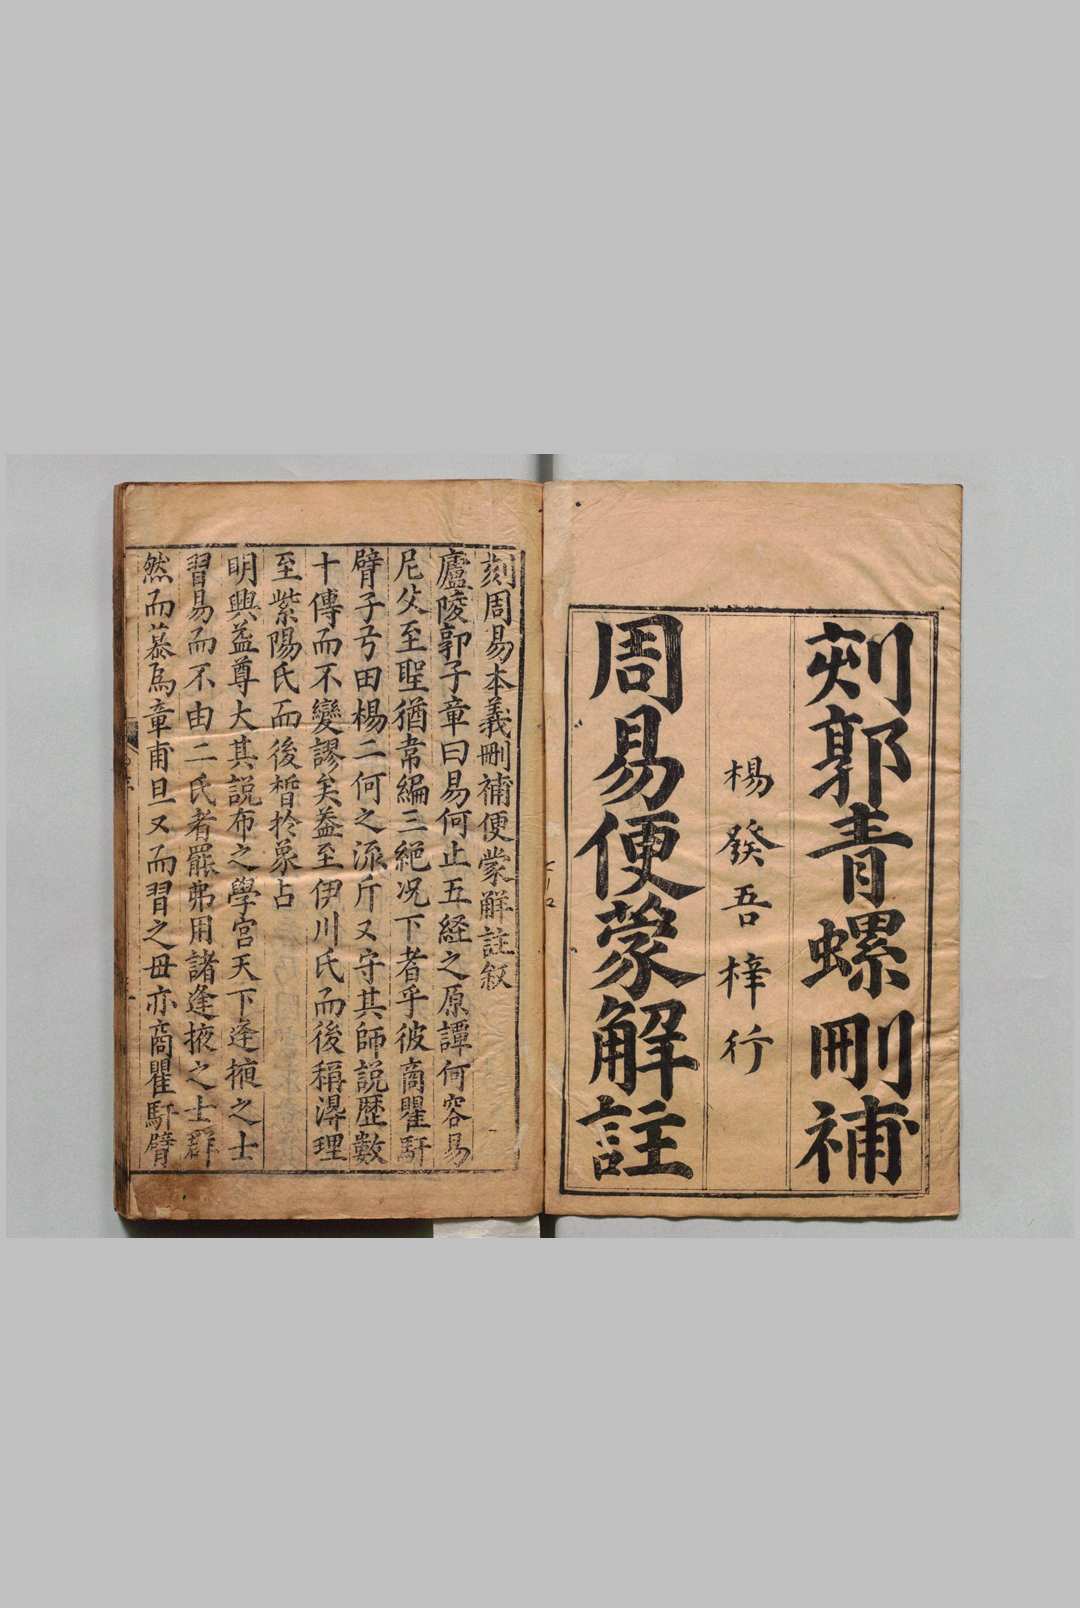 刻郭青螺刪補
楊發吾梓行
周易便蒙解註
刻周易本義刪補便蒙解註叙
廬陵郭子章曰易何止五経之原譚何容易
尼父至聖猶韋編三絕况下者乎彼商瞿馯
臂子弓田楊二何之流斤又守其師説歷數
十傳而不變謬矣葢至伊川氏而後稱淂理
至紫陽氏而後晳扵象占
明興益尊大其説布之學宮天下逢掖之士
習易而不由二氏者罷弗用諸逢掖之士群
然而慕為章甫旦又而習之毋亦商瞿馯臂